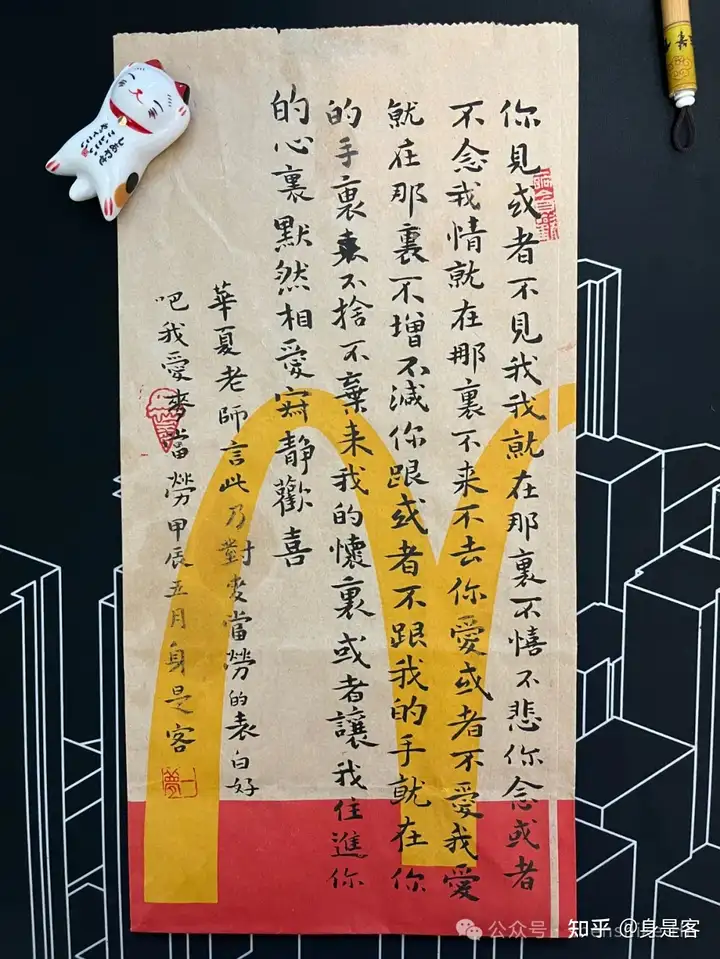 你見或者不見我我就在那裏不憘不悲你念或者
不念我情就在那裏不来不去你愛或者不愛我愛
就在那裏不增不減你跟或者不跟我的手就在你
的手裏不捨不棄来我的懷裏或者讓我住進你
的心裏默然相愛寂靜歡喜
華夏老師言此乃對麥當勞的表白好
吧我愛麥當勞甲辰五月身是客
しあわせ
公众号
知乎 @身是客